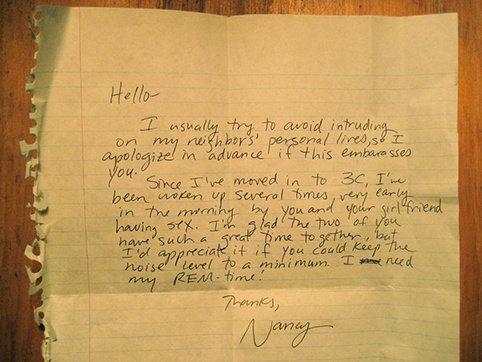 Hello-
I usually try to avoid intruding
on my neighbors' personal lives, so I
apologize in advance if this embarasses
you.
Since I've moved in to 3C, I've
been woken up several times, very early
in the morning by you and your girlfriend
having sex. I'm glad the two of you
have such a great time together, but
I'd appreciate it if you could keep the
noise level to a minimum. I need
my REM-time!
Thanks,
Nancy